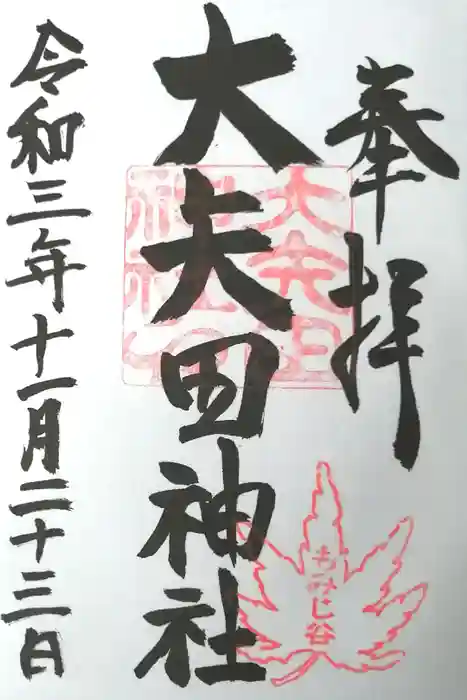 奉拝
大矢田神社
令和三年十一月二十三日
大矢田
神社
もみじ谷